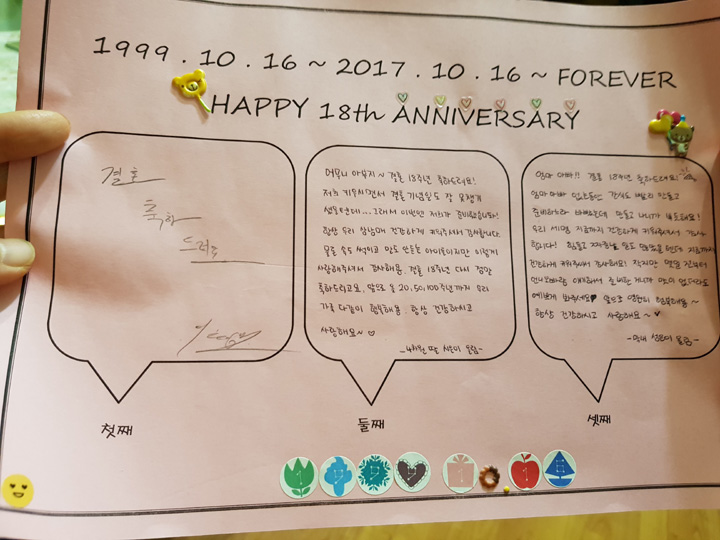 1999 . 10 . 16 ~ 2017 . 10 . 16 ~ FOREVER
HAPPY 18th ANNIVERSARY
결혼
축하
드려요
어머니 아부지~ 결혼 18주년 축하드려요!
저희 키우시면서 결혼기념일도 잘 못챙기
셨을텐데... 그래서 이번엔 저희가 준비했습니다!
항상 우리 삼남매 건강하게 키워주셔서 감사합니다.
맨날 속도 썩이고 말도 안듣는 아이들이지만 이렇게
사랑해주셔서 감사해용. 결혼 18주년 다시 한번
축하드리고요, 앞으로 쭉 20, 50, 100주년까지 우리
가족 다같이 행복해용. 항상 건강하시고
사랑해요~ ♡
엄마 아빠!! 결혼 18주년 축하드려요!
엄마아빠 없는동안 간식도 만들고
우리 세명 지금까지 건강하게 키워주셔서 감사
합니다!
건강하게 키워주셔서 감사해요! 작지만
예쁘게 봐주세요♥ 앞으로 영원히 행복해용~
항상 건강하시고 사랑해요~
첫째
둘째
셋째